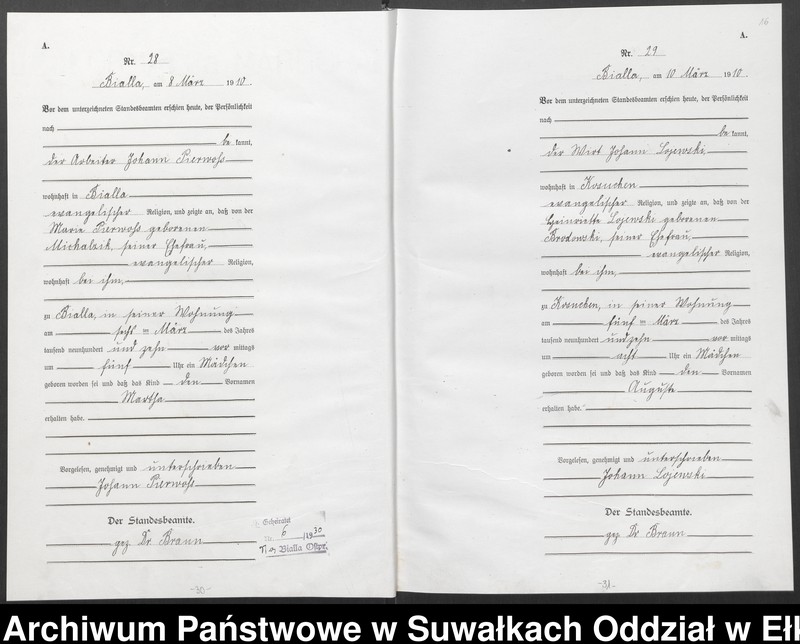 A.
Nr. 28
Bialla, am 8 März 1910.
Vor dem unterzeichneten Standesbeamten erschien heute, der Persönlichkeit
nach
be kannt,
der Arbeiter Johann Pierwoß
wohnhaft in Bialla
evangelischer Religion, und zeigte an, daß von der
Marie Pierwoß geborenen
Michalzik, seiner Ehefrau,
evangelischer Religion,
wohnhaft bei ihm,
zu Bialla, in seiner Wohnung
am sechs ten März des Jahres
tausend neunhundert und zehn vor mittags
um fünf Uhr ein Mädchen
geboren worden sei und daß das Kind den Vornamen
Martha
erhalten habe.
Vorgelesen, genehmigt und unterschrieben
Johann Pierwoß
Der Standesbeamte.
gez. Dr. Braun
Geheiratet
Nr. 6 /1930
Bialla Ostpr.
-30-
16
A.
Nr. 29
Bialla, am 10 März 1910.
Vor dem unterzeichneten Standesbeamten erschien heute, der Persönlichkeit
nach
be kannt,
der Wirt Johann Lojewski
wohnhaft in Kosuchen
evangelischer Religion, und zeigte an, daß von der
Heinriette Lojewski geborenen
Brodowski, seiner Ehefrau,
evangelischer Religion,
wohnhaft bei ihm,
zu Kosuchen, in seiner Wohnung
am fünf ten März des Jahres
tausend neunhundert undzehn vor mittags
um acht Uhr ein Mädchen
geboren worden sei und daß das Kind den Vornamen
Auguste
erhalten habe.
Vorgelesen, genehmigt und unterschrieben
Johann Lojewski
Der Standesbeamte.
gez. Dr Braun
-31-
Archiwum Państwowe w Suwałkach Oddział w Eł